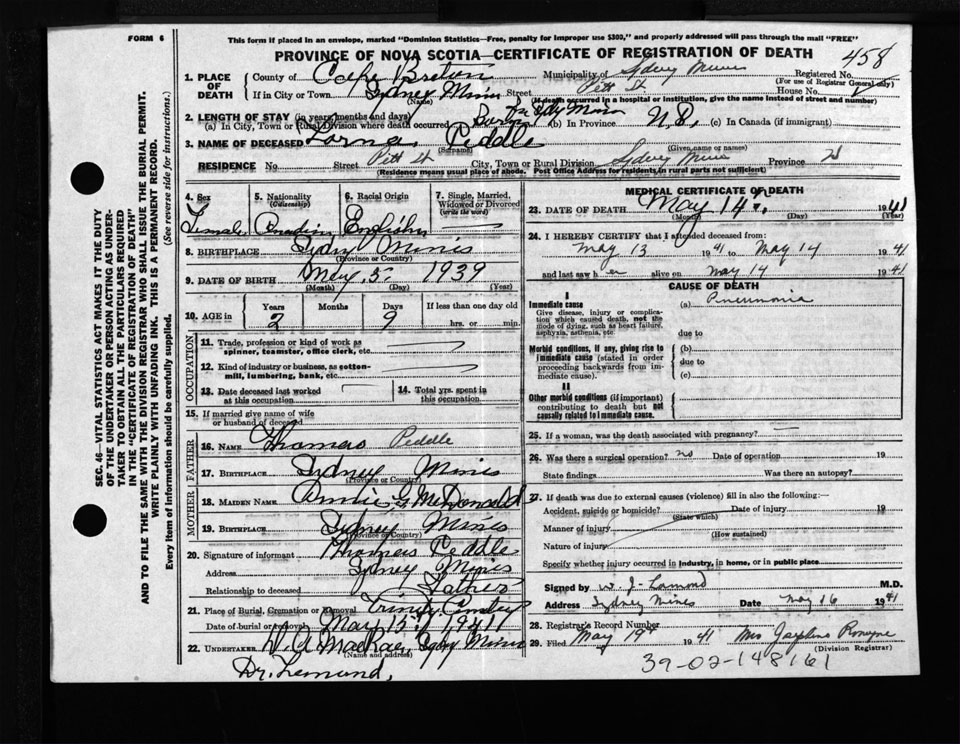 FORM 6
This form if placed in an envelope, marked "Dominion Statistics—Free, penalty for improper use $300," and properly addressed will pass through the mail "FREE"
PROVINCE OF NOVA SCOTIA—CERTIFICATE OF REGISTRATION OF DEATH
458
1. PLACE OF DEATH
County of Cape Breton Municipality of Sydney Mines Registered No.
(For use of Registrar General only)
If in City or Town Sydney Mines Street Pitt St House No.
(Name) (If death occurred in a hospital or institution, give the name instead of street and number)
2. LENGTH OF STAY (in years, months and days)
(a) In City, Town or Rural Division where death occurred (b) In Province N.S. (c) In Canada (if immigrant)
3. NAME OF DECEASED Lorna Peddle
(Surname) (Given name or names)
RESIDENCE No. Street Pitt St City, Town or Rural Division Sydney Mines Province
(Residence means usual place of abode. Post Office Address for residents in rural parts not sufficient)
4. Sex Female
5. Nationality (Citizenship) Canadian
6. Racial Origin English
7. Single, Married, Widowed or Divorced (write the word)
8. BIRTHPLACE Sydney Mines
(Province or Country)
9. DATE OF BIRTH May 5 1939
(Month) (Day) (Year)
10. AGE in Years 2 Months Days 9 If less than one day old hrs. or min.
OCCUPATION
11. Trade, profession or kind of work as spinner, teamster, office clerk, etc.
12. Kind of industry or business, as cotton-mill, lumbering, bank, etc.
13. Date deceased last worked at this occupation
14. Total yrs. spent in this occupation
15. If married give name of wife or husband of deceased
FATHER
16. NAME Thomas Peddle
17. BIRTHPLACE Sydney Mines
(Province or Country)
MOTHER
18. MAIDEN NAME Annie G. McDonald
19. BIRTHPLACE Sydney Mines
(Province or Country)
20. Signature of informant Thomas Peddle
Address Sydney Mines
Relationship to deceased Father
21. Place of Burial, Cremation or Removal Trinity
Date of burial or removal May 15 1941
22. UNDERTAKER D. A. MacRae, Sydney Mines
(Name and address)
Dr. Lemond,
MEDICAL CERTIFICATE OF DEATH
23. DATE OF DEATH May 14 1941
(Month) (Day) (Year)
24. I HEREBY CERTIFY that I attended deceased from:
May 13 1941 to May 14 1941
and last saw her alive on May 14 1941
CAUSE OF DEATH
I
Immediate cause (a) Pneumonia
Give disease, injury or complication which caused death, not the mode of dying, such as heart failure, asphyxia, asthenia, etc.
due to
Morbid conditions, if any, giving rise to immediate cause (stated in order proceeding backwards from immediate cause).
(b)
due to
(c)
II
Other morbid conditions (if important) contributing to death but not causally related to immediate cause.
25. If a woman, was the death associated with pregnancy?
26. Was there a surgical operation? no Date of operation 19
State findings Was there an autopsy?
27. If death was due to external causes (violence) fill in also the following:—
Accident, suicide or homicide? Date of injury 19
(State which)
Manner of injury
(How sustained)
Nature of injury
Specify whether injury occurred in industry, in home, or in public place
Signed by W. J. Lamond M.D.
Address Sydney Mines Date May 16 1941
28. Registrar's Record Number
29. Filed May 19th 1941 Mrs
(Division Registrar)
39-02-148161
SEC. 46—VITAL STATISTICS ACT MAKES IT THE DUTY OF THE UNDERTAKER OR PERSON ACTING AS UNDERTAKER TO OBTAIN ALL THE PARTICULARS REQUIRED IN THE "CERTIFICATE OF REGISTRATION OF DEATH"
AND TO FILE THE SAME WITH THE DIVISION REGISTRAR WHO SHALL ISSUE THE BURIAL PERMIT.
WRITE PLAINLY WITH UNFADING INK. THIS IS A PERMANENT RECORD.
Every item of information should be carefully supplied. (See reverse side for instructions.)